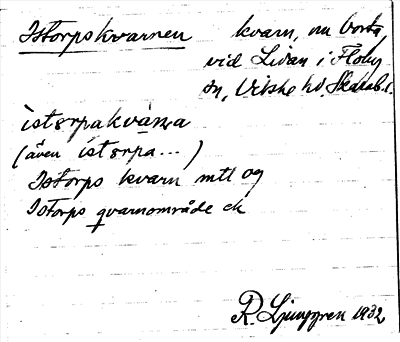 Istorpskvarnen kvarn, nu borta,
vid Lidan i Floby
sn, Vilske hd. Skarab. l.
ìstɵrpakvàṇa
(även ístɵrpa...)
Istorps kvarn mtl og
Istorps qvarnområde ek
R. Ljunggren 1932